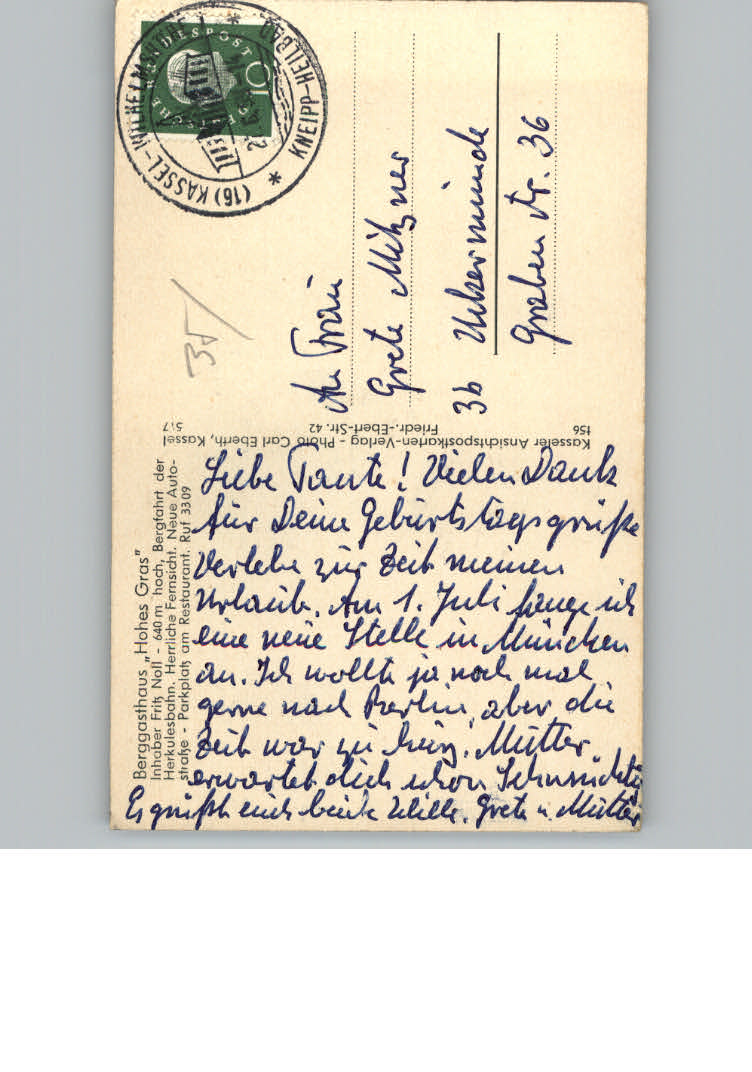 Berggasthaus „Hohes Gras"
Inhaber Fritz Noll - 640 m hoch, Bergfahrt der
Herkulesbahn. Herrliche Fernsicht. Neue Auto-
straße - Parkplatz am Restaurant. Ruf 3309
Liebe Tante! Vielen Dank
für Deine Geburtstagsgrüße
Verlebe zur Zeit meinen
Urlaub. Am 1. Juli fange ich
eine neue Stelle in München
an. Ich wollte ja noch mal
gerne nach Berlin, aber die
Zeit war zu kurz. Mutter
erwartet dich schon Sehnsüchtig
Es grüßt euch beide Willi. Grete u. Mutter
Kasseler Ansichtspostkarten-Verlag - Photo Carl Eberth, Kassel
Friedr.-Ebert-Str. 42
517
156
An Frau
Grete Mitzner
3b Uekermünde
Graben Nr. 36
35
DEUTSCHE BUNDESPOST
10
(16) KASSEL-WILHELMSHÖHE
KNEIPP-HEILBAD